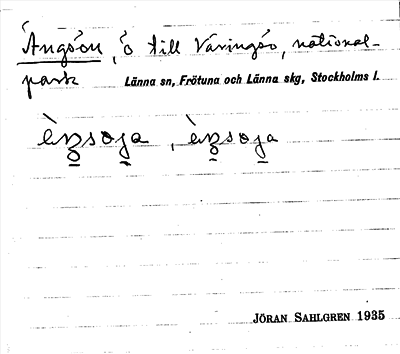 Ängsön, ö till Väringsö, national-
park Länna sn, Frötuna och Länna skg, Stockholms l.
JÖRAN SAHLGREN 1935